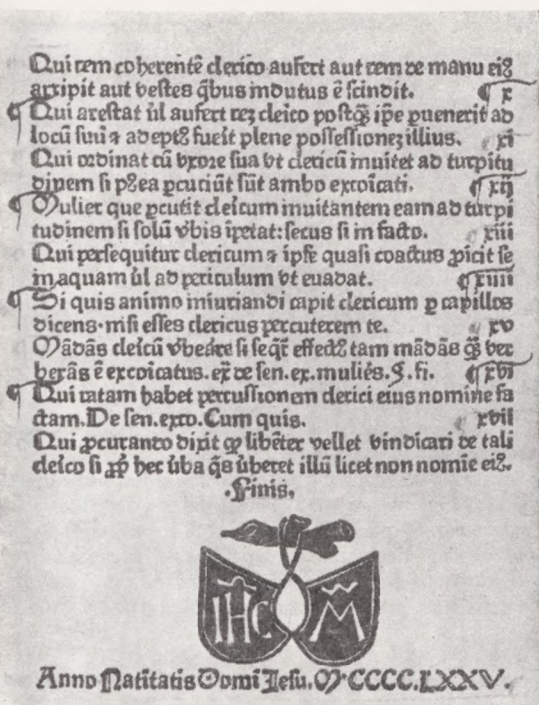 Qui rem coherentē clerico aufert aut rem de manu eiꝰ
arripit aut vestes q̄bus indutus ē scindit. ¶ x
¶ Qui arestat ūl aufert reꝫ cleico postq̄ ip̄e ꝑuenerit ad
locū suū ⁊ adeptꝰ fueīt plene possessioneꝫ illius. xi
Qui ordinat cū vxore sua vt clericū inuitet ad turpitu
dinem si pꝰea ꝑcuciūt sūt ambo excoīcati. ¶ xij
¶ Mulier que ꝑcutit cleīcum inuitantem eam ad turpi
tudinem si solū v̄bis īpetat: secus si in facto. xiii
Qui persequitur clericum ⁊ ipse quasi coactus ꝓicit se
in aquam ūl ad periculum vt euadat. ¶ xiiii
¶ Si quis animo iniuriandi capit clericum ꝑ capillos
dicens. nisi esses clericus percuterem te. ¶ xv
Mādās cleīcū v̄beāre si seqt̄ effectꝰ tam mādās q̄ꝫ ver
berās ē excoīcatus. ex̄ de sen. ex. muliēs. §. fi. ¶ xvi
¶ Qui ratam habet percussionem clerici eius nomine fa
ctam. De sen. exco. Cum quis. ¶ xvii
Qui ꝓcurando dixit ꝙ libēter vellet vindicari de tali
cleīco si ꝓp̄ hec v̄ba q̄s v̄beret illū licet non nomīe eiꝰ.
.Finis,
IHC M
Anno Natiitatis Domī Jesu. M.CCCC.LXXV.